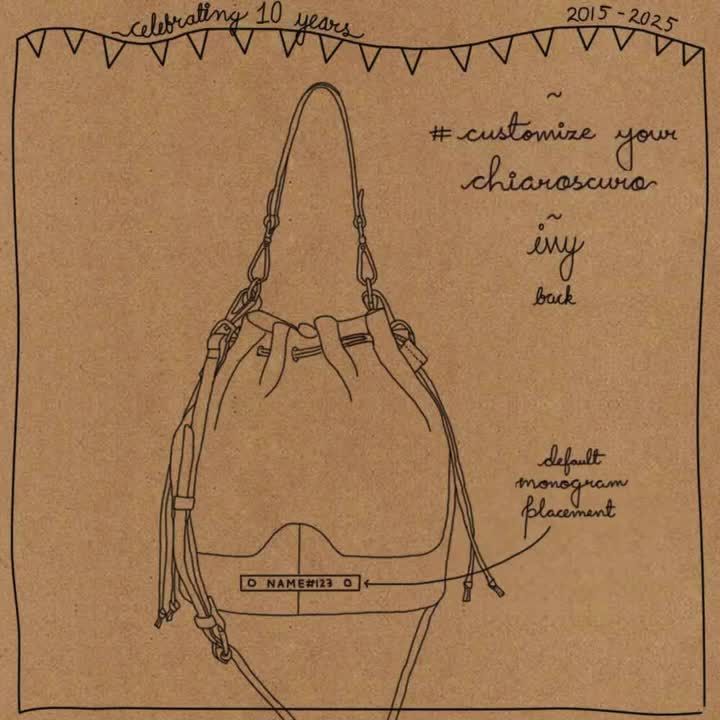 celebrating 10 years
2015-2025
~
#customize your
chiaroscuro
~
ivy
back
default
monogram
placement
NAME#123